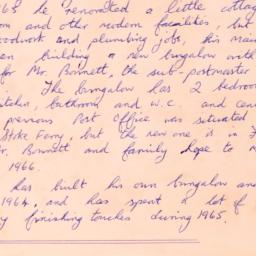 63 he renovated a little cottag
om and other modern facilities, but
oodwork and plumbing jobs, his main
en building a new bungalow with
for Mr. Bonnett, the sub-postmaster
The bungalow has 2 bedroom
itchen, bathroom and W.C. and cen
previous Post Office was situated
Stoke Ferry, but the new one is in F
Mr. Bonnett and family hope to m
1966.
has built his own bungalow and
1964, and has spent a lot of
finishing touches during 1965.